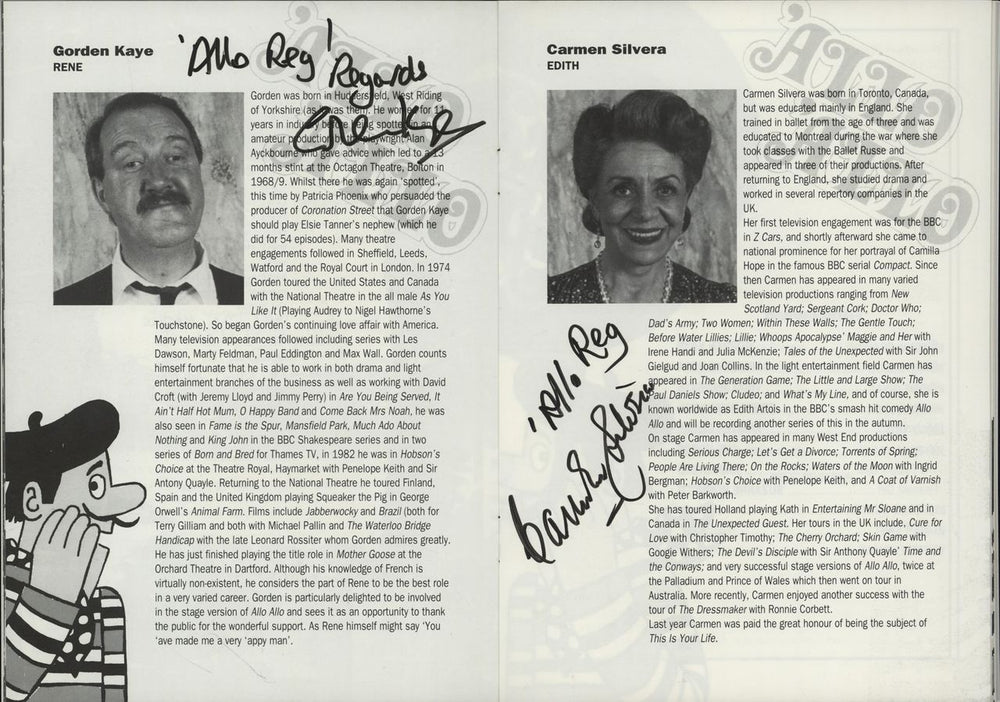 Gorden Kaye
RENE
'Allo Reg'
Regards
Gorden was born in Huddersfield, West Riding
of Yorkshire (as it was then). He worked for 11
years in industry before being spotted in an
amateur production by the playwright Alan
Ayckbourne who gave advice which led to a 13
months stint at the Octagon Theatre, Bolton in
1968/9. Whilst there he was again 'spotted',
this time by Patricia Phoenix who persuaded the
producer of Coronation Street that Gorden Kaye
should play Elsie Tanner's nephew (which he
did for 54 episodes). Many theatre
engagements followed in Sheffield, Leeds,
Watford and the Royal Court in London. In 1974
Gorden toured the United States and Canada
with the National Theatre in the all male As You
Like It (Playing Audrey to Nigel Hawthorne's
Touchstone). So began Gorden's continuing love affair with America.
Many television appearances followed including series with Les
Dawson, Marty Feldman, Paul Eddington and Max Wall. Gorden counts
himself fortunate that he is able to work in both drama and light
entertainment branches of the business as well as working with David
Croft (with Jeremy Lloyd and Jimmy Perry) in Are You Being Served, It
Ain't Half Hot Mum, O Happy Band and Come Back Mrs Noah, he was
also seen in Fame is the Spur, Mansfield Park, Much Ado About
Nothing and King John in the BBC Shakespeare series and in two
series of Born and Bred for Thames TV, in 1982 he was in Hobson's
Choice at the Theatre Royal, Haymarket with Penelope Keith and Sir
Antony Quayle. Returning to the National Theatre he toured Finland,
Spain and the United Kingdom playing Squeaker the Pig in George
Orwell's Animal Farm. Films include Jabberwocky and Brazil (both for
Terry Gilliam and both with Michael Pallin and The Waterloo Bridge
Handicap with the late Leonard Rossiter whom Gorden admires greatly.
He has just finished playing the title role in Mother Goose at the
Orchard Theatre in Dartford. Although his knowledge of French is
virtually non-existent, he considers the part of Rene to be the best role
in a very varied career. Gorden is particularly delighted to be involved
in the stage version of Allo Allo and sees it as an opportunity to thank
the public for the wonderful support. As Rene himself might say 'You
'ave made me a very 'appy man'.
Carmen Silvera
EDITH
Carmen Silvera was born in Toronto, Canada,
but was educated mainly in England. She
trained in ballet from the age of three and was
educated to Montreal during the war where she
took classes with the Ballet Russe and
appeared in three of their productions. After
returning to England, she studied drama and
worked in several repertory companies in the
UK.
Her first television engagement was for the BBC
in Z Cars, and shortly afterward she came to
national prominence for her portrayal of Camilla
Hope in the famous BBC serial Compact. Since
then Carmen has appeared in many varied
television productions ranging from New
Scotland Yard; Sergeant Cork; Doctor Who;
Dad's Army; Two Women; Within These Walls; The Gentle Touch;
Before Water Lillies; Lillie; Whoops Apocalypse' Maggie and Her with
Irene Handi and Julia McKenzie; Tales of the Unexpected with Sir John
Gielgud and Joan Collins. In the light entertainment field Carmen has
appeared in The Generation Game; The Little and Large Show; The
Paul Daniels Show; Cludeo; and What's My Line, and of course, she is
known worldwide as Edith Artois in the BBC's smash hit comedy Allo
Allo and will be recording another series of this in the autumn.
On stage Carmen has appeared in many West End productions
including Serious Charge; Let's Get a Divorce; Torrents of Spring;
People Are Living There; On the Rocks; Waters of the Moon with Ingrid
Bergman; Hobson's Choice with Penelope Keith, and A Coat of Varnish
with Peter Barkworth.
She has toured Holland playing Kath in Entertaining Mr Sloane and in
Canada in The Unexpected Guest. Her tours in the UK include, Cure for
Love with Christopher Timothy; The Cherry Orchard; Skin Game with
Googie Withers; The Devil's Disciple with Sir Anthony Quayle' Time and
the Conways; and very successful stage versions of Allo Allo, twice at
the Palladium and Prince of Wales which then went on tour in
Australia. More recently, Carmen enjoyed another success with the
tour of The Dressmaker with Ronnie Corbett.
Last year Carmen was paid the great honour of being the subject of
This Is Your Life.
'Allo Reg
Carmen Silvera